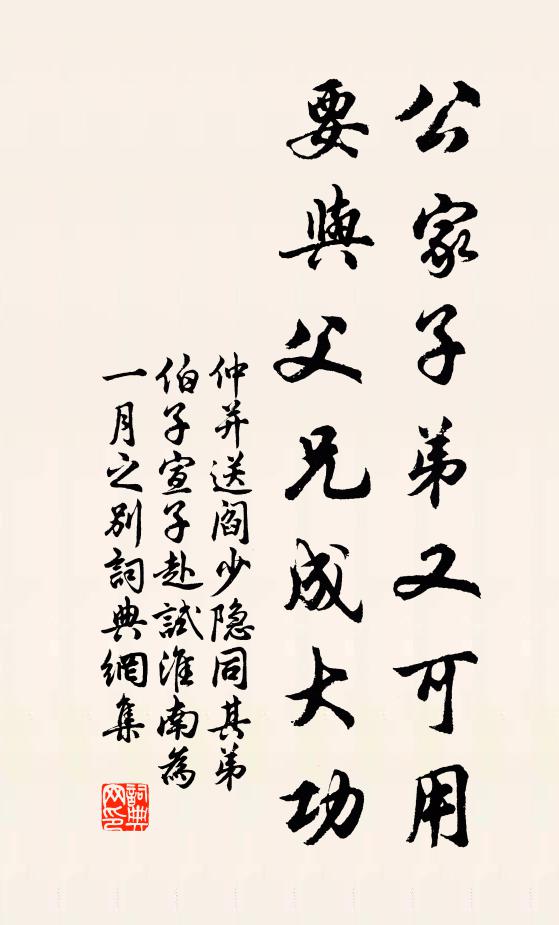 公家子弟又可用
要與父兄成大功
仲并送閻少隐同其弟
伯子宣子赴試淮南為
一月之别詞典網集
詞典网印